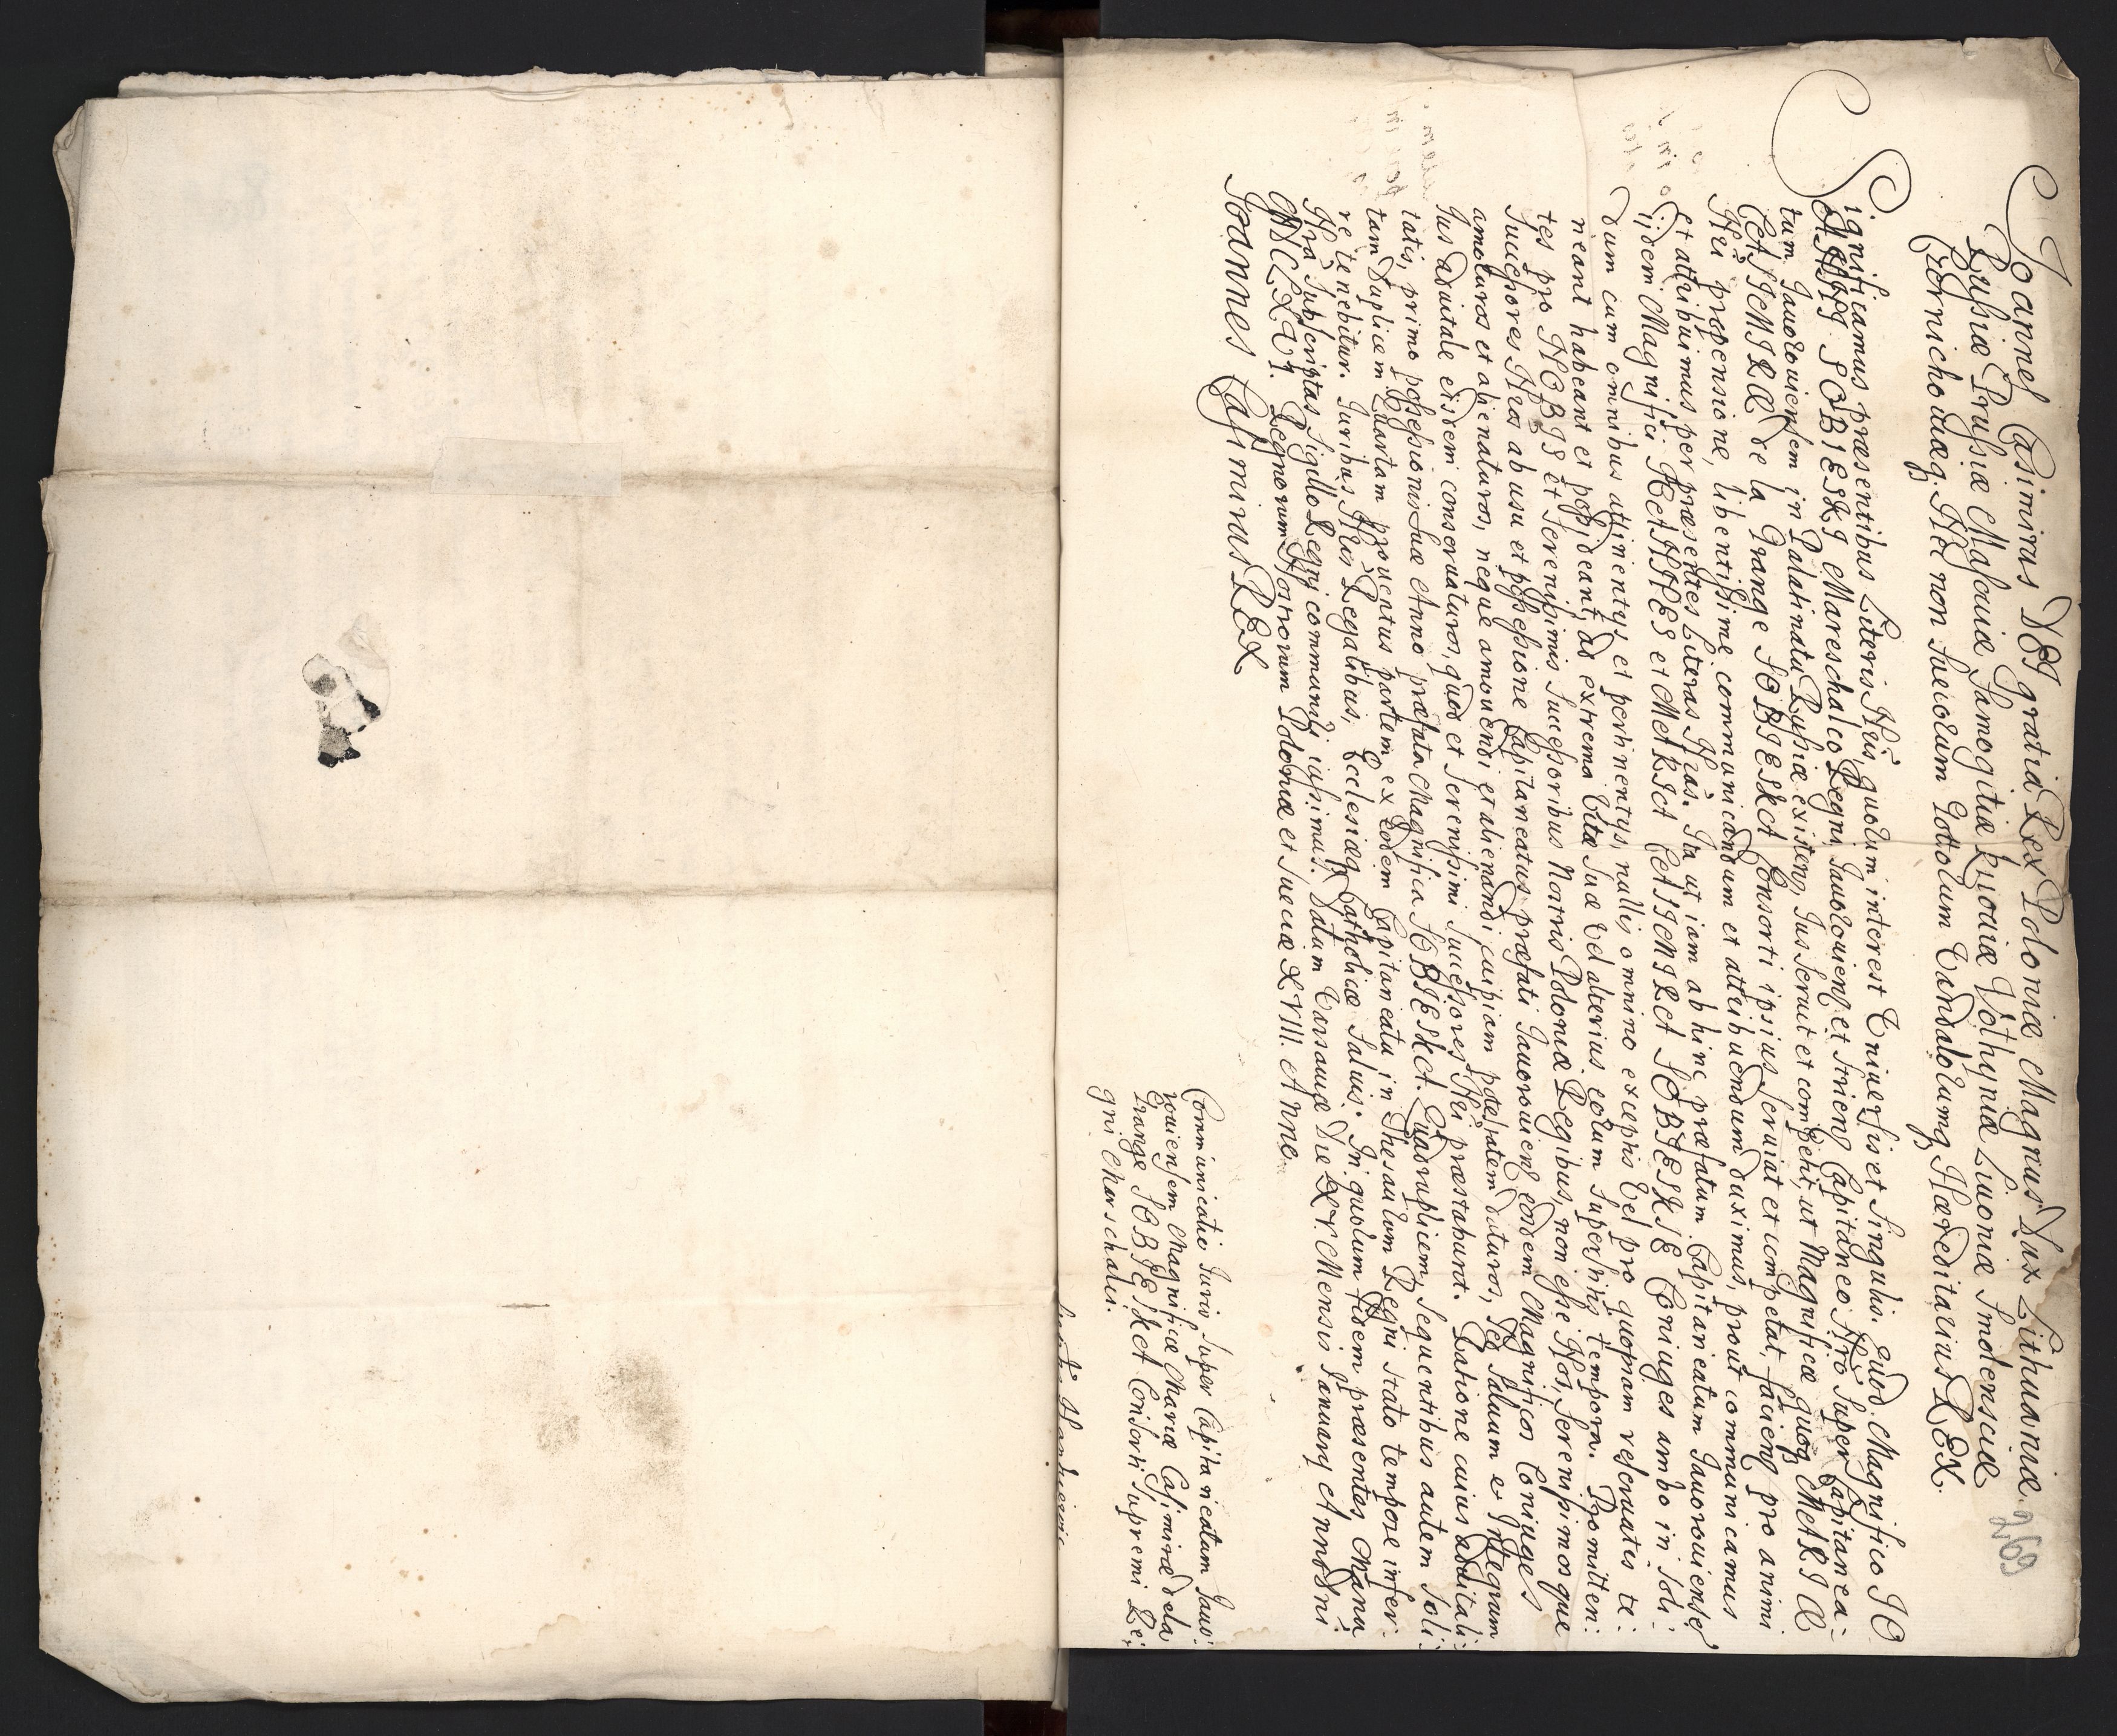 Joannes Casimirus DEI gratia Rex Poloniæ Magnus Dux Lithuaniæ
269
Russiæ Prussiæ Masouiæ Samogitiæ Kijouiæ Volhyniæ Liuoniæ Smolensciæ
Czernichouiæq. Nec non Suecorum Gottorum Vandalorumq Hæreditarius REX.
Significamus præsentibus Literis Nris, quorum interest Vniuersis et Singulis. Quod Magnifico IO
ANNI SOBIESKI Mareschalco Regni, Jauorouien, et Strien, Capitaneo Nro Super Capitanea-
tum Jauorouiensem in Palatinatu Russiæ existen, Jus seruit et competit, ut Magnificæ quoq MARIÆ
CASIMIRÆ de la Grange SOBIESKA Consorti ipsius seruiat et competat, facien, pro animi
Nri propensione, libentissime communicandum et attribuendum duximus, prout communicamus
et attribuimus per præsentes Literas Nras. Ita ut iam ab hinc præfatum Capitaneatum Jauorouiensem
ijdem Magnifici IOANNES et MARIA CASIMIRA SOBIESKIE Coniuges ambo in soli-
dum cum omnibus attinentijs et pertinentijs, nullis omnino exceptis vel pro quopiam reseruatis te-
neant habeant et possideant, ad extrema vitæ suæ vel alterius eorum superstitis tempora. Promitten-
tes pro NOBIS et Serenissimis Successoribus Nostris Poloniæ Regibus, non esse Nos, Serenissimosque
Successores Nros ab usu et possessione Capitaneatus præfati Jauorouien, eosdem Magnificos Coniuges
amoturos et alienaturos, neque amouendi et alienandi cuipiam potestatem daturos, sed saluum et Integrum
Jus aduitale eisdem conseruaturos, quod et Serenissimi Successores Nri præstabunt. Ratione cuius aduitali-
tatis, primo possessionis suæ Anno præfata Magnifica SOBIESKA Quadruplicem, Sequentibus autem soli-
tam duplicem Quartam prouentus partem ex eodem Capitaneatu in Thesaurum Regni stato tempore infer-
re tenebitur. Juribus Nris Regalibus, Ecclesiæq Catholicæ Saluis. In quorum fidem præsentes Manu
Nra Subscriptas Sigillo Regni communiri iussimus. Datum Varsauiæ Die XV. Mensis January Anno Dni
MDCLXVI. Regnorum Nostrorum Poloniæ et Sueciæ XVIII. Anno
Joannes Casimirus REX
Communicatio Juris super Capitaneatum Jauo-
rouiensem Magnificæ Mariæ Casimiræ de la
Grange SOBIESKA Consorti Supremi Re-
gni Marschalci.